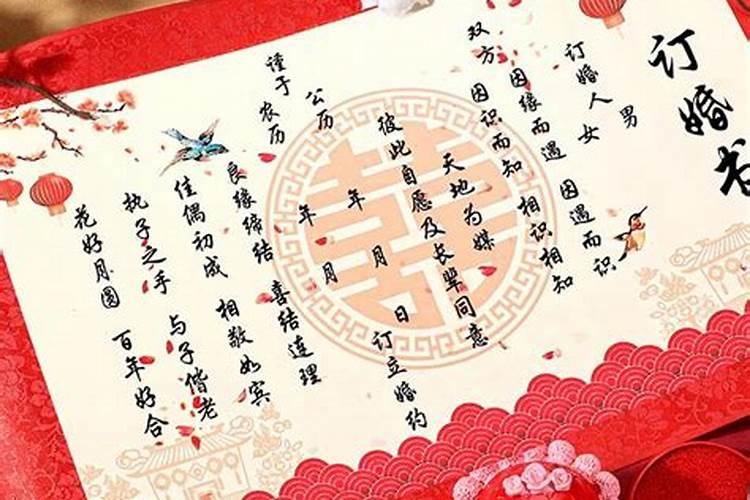 订婚书
男
订婚人 女
双方
因缘而遇 因遇而识
因识而知 相识相知
天地为媒
彼此自愿及长辈同意
谨于
公历 年 月 日订立婚约
农历 年 月
良缘缔结 喜结连理
佳偶初成 相敬如宾
执子之手 与子偕老
花好月圆 百年好合